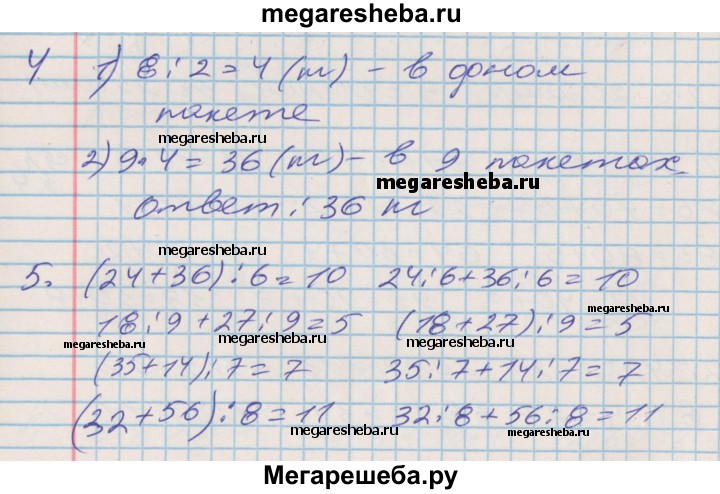 megaresheba.ru
4 1) 8 : 2 = 4 (т) - в доном
пакете
megaresheba.ru
2) 9 · 4 = 36 (т) - в 9 пакетах.
megaresheba.ru
ответ : 36 т
megaresheba.ru
5. (24 + 36) : 6 = 10 24 : 6 + 36 : 6 = 10
megaresheba.ru
18 : 9 + 27 : 9 = 5 (18 + 27) : 9 = 5
megaresheba.ru megaresheba.ru
(35 + 14) : 7 = 7 35 : 7 + 14 : 7 = 7
(32 + 56) : 8 = 11 32 : 8 + 56 : 8 = 11
megaresheba.ru megaresheba.ru
Мегарешеба.ру